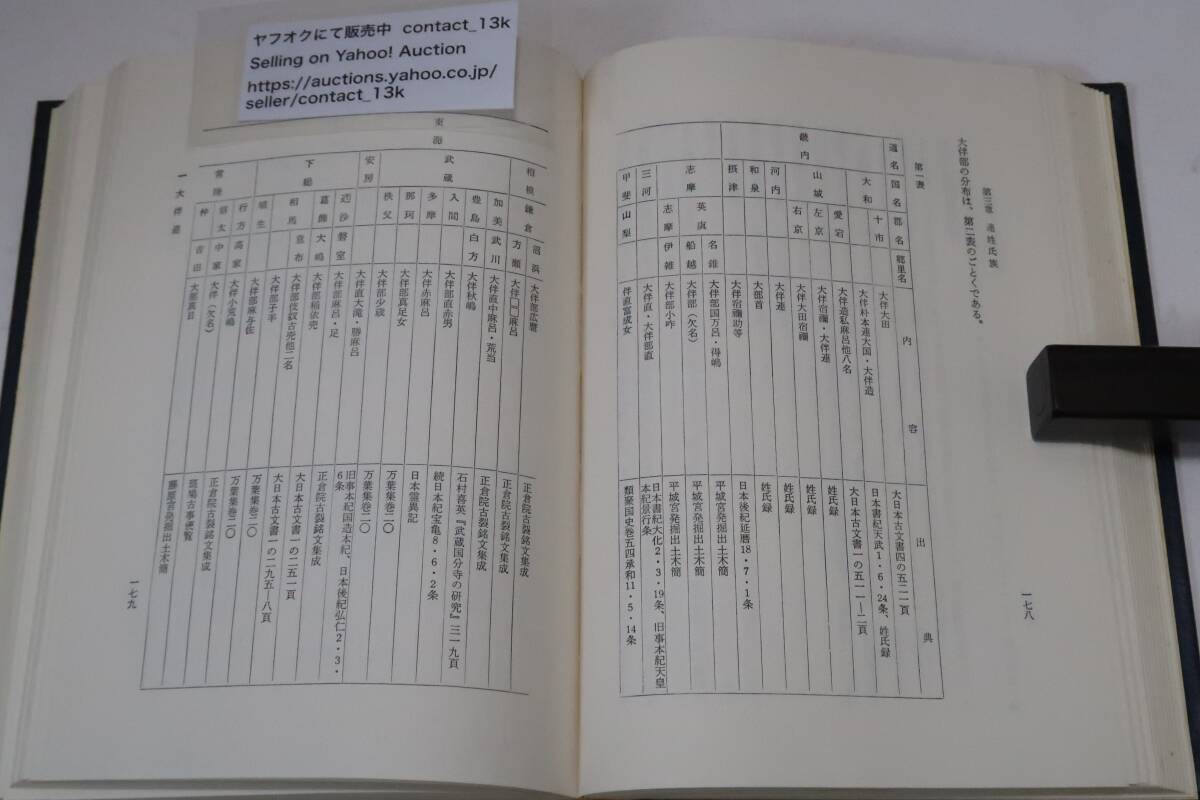 ヤフオクにて販売中 contact_13k
Selling on Yahoo! Auction
https://auctions.yahoo.co.jp/
seller/contact_13k
第三章 道姓氏族
大伴部の分布は、第二表のごとくである。
第一表
道名 国名 郡名 郷里名 内容 出典
畿内 大和 十市 大伴大田 大日本古文書四の五二一頁
大伴朴本連大国・大伴造 日本書紀天武1・6・24条、姓氏録
山城 愛宕 大伴造私麻呂他八名 大日本古文書一の五一一―二頁
左京 大伴宿禰・大伴連 姓氏録
右京 大伴大田宿禰 姓氏録
河内 大伴連 姓氏録
和泉 大部首 姓氏録
摂津 大伴宿禰助等 日本後紀延暦18・7・1条
志摩 英虞 名錐 大伴部国万呂・得嶋 平城宮発掘出土木簡
船越 大伴部(欠名) 平城宮発掘出土木簡
志摩 伊雑 大伴部小咋 平城宮発掘出土木簡
三河 大伴直・大伴部直 日本書紀大化2・3・19条、旧事本紀天皇本紀景行条
甲斐 山梨 伴直富成女 類聚国史巻五四承和11・5・14条
一七八
東海
相模 鎌倉 沼浜 大伴部広麗 正倉院古裂銘文集成
方瀬 大伴□□麻呂 正倉院古裂銘文集成
武蔵 加美 武川 大伴直中麻呂・荒当 正倉院古裂銘文集成
豊島 白方 大伴秋嶋 石村喜英『武蔵国分寺の研究』三一九頁
入間 大伴部直赤男 続日本紀宝亀8・6・2条
多摩 大伴赤麻呂 日本霊異記
那珂 大伴部真足女 万葉集巻二〇
秩父 大伴部少歳 万葉集巻二〇
安房 大伴直大滝・勝麻呂 旧事本紀国造本紀、日本後紀弘仁2・3・6条
下総 迊沙 磐室 大伴部麻呂・足 正倉院古裂銘文集成
葛飾 大嶋 大伴部稲依売 大日本古文書一の二五一頁
相馬 意布 大伴部伎奴古売他二名 大日本古文書一の二九五―八頁
埴生 大伴部子羊 万葉集巻二〇
常陸 大伴部麻与佐 万葉集巻二〇
行方 高家 大伴小荒嶋 正倉院古裂銘文集成
信太 中家 大伴(欠名) 斑鳩古事便覧
吉田 大部真目 藤原宮発掘出土木簡
一 大伴道
一七九